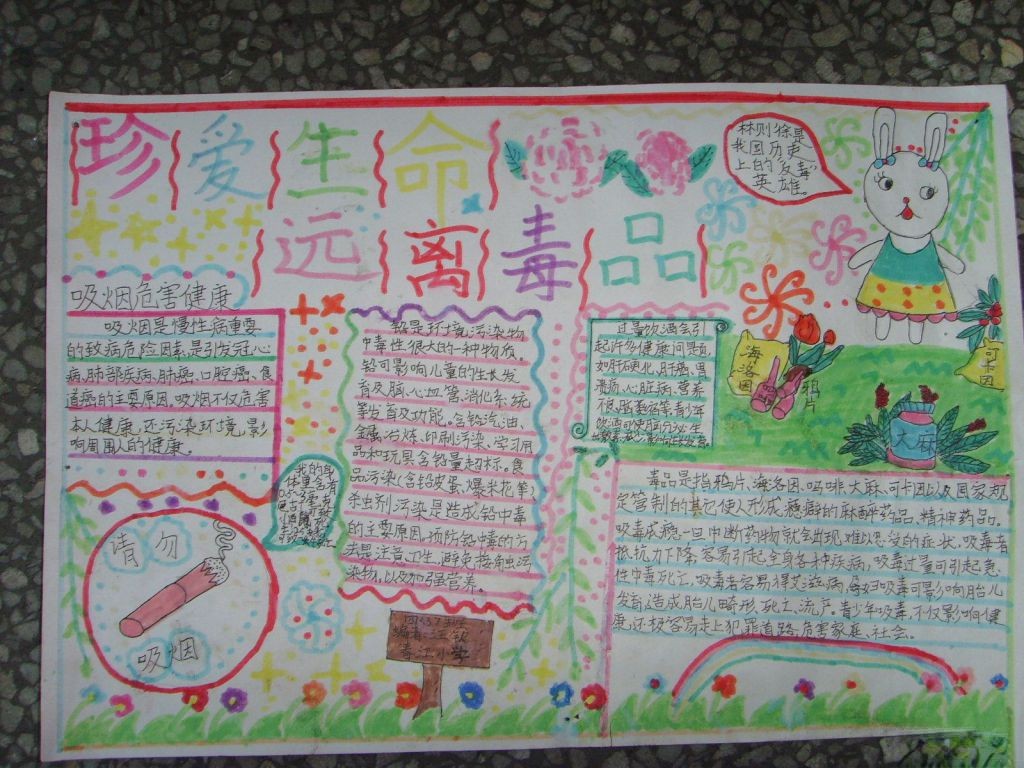 珍爱生命
远离毒品
林则徐是
我国历史
上的“反毒”
英雄。
吸烟危害健康
吸烟是慢性病重要
的致病危险因素,是引发冠心
病、肺部疾病、肺癌、口腔癌、食
道癌的主要原因。吸烟不仅危害
本人健康,还污染环境,影
响周围人的健康。
铅是环境污染物
中毒性很大的一种物质。
铅可影响儿童的生长发
育及脑、心血管、消化系统
等发育及功能。含铅汽油、
金属冶炼、印刷污染、学习用
品和玩具含铅量超标、食
品污染(含铅皮蛋、爆米花等)
杀虫剂污染是造成铅中毒
的主要原因。预防铅中毒的方
法是注意卫生,避免接触污
染物,以及加强营养。
过量饮酒会引
起许多健康问题,
如肝硬化、肝癌、胃
溃疡、心脏病、营养
不良、脑萎缩等,青少年
海洛因
鸦片
可卡因
大麻
毒品是指鸦片、海洛因、吗啡、大麻、可卡因以及国家规
定管制的其它使人形成瘾癖的麻醉药品、精神药品。
吸毒成瘾,一旦中断药物就会出现难以忍受的症状,吸毒者
抵抗力下降,容易引起全身各种疾病,吸毒过量可引起急
性中毒死亡,吸毒者容易得艾滋病,母妇吸毒可影响胎儿
发育,造成胎儿畸形、死亡、流产。青少年吸毒,不仅影响健
康,还极容易走上犯罪道路,危害家庭、社会。
请勿
吸烟